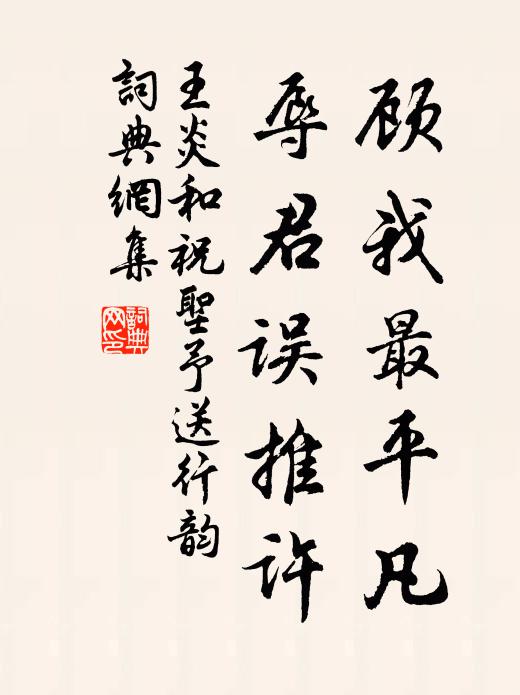 顾我最平凡
辱君误推许
王炎和祝聖予送行韵
詞典網集
詞典网印